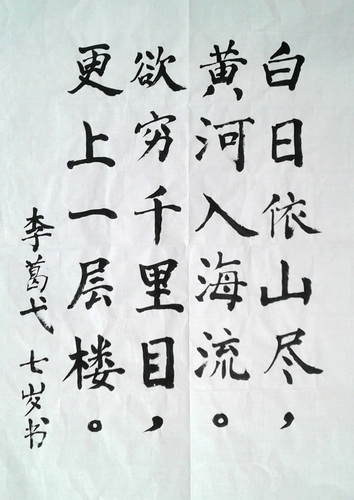 白日依山尽，
黄河入海流。
欲穷千里目，
更上一层楼。
李葛弋 七岁书